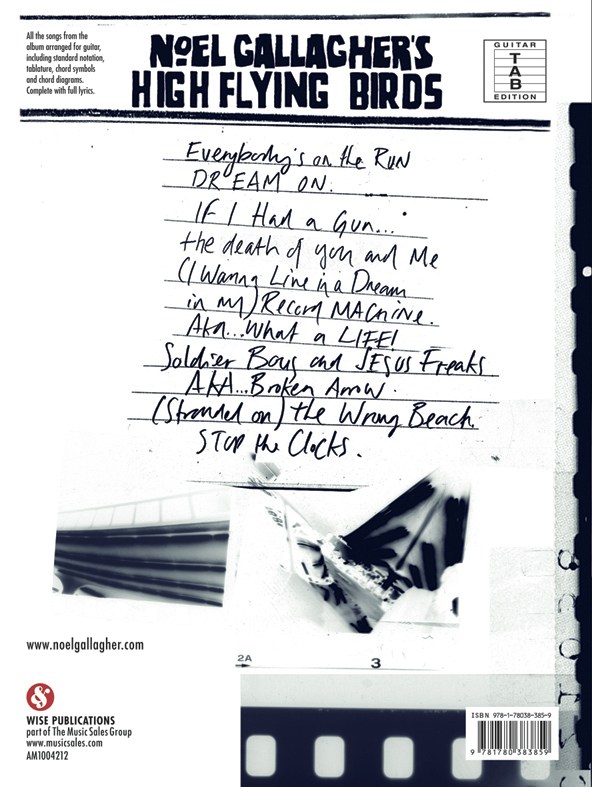 All the songs from the
album arranged for guitar,
including standard notation,
tablature, chord symbols
and chord diagrams.
Complete with full lyrics.
NOEL GALLAGHER'S
HIGH FLYING BIRDS
GUITAR
TAB
EDITION
Everybody's on the RUN
DREAM ON.
IF I Had a Gun...
the death of you and Me
(I Wanna Live in a Dream
in my) Record MACHINE.
AKA...What a LIFE!
Soldier Boys and JESUS Freaks
AKA...Broken Arrow.
(Stranded on) the Wrong Beach.
STOP the Clocks.
www.noelgallagher.com
2A
3
WISE PUBLICATIONS
part of The Music Sales Group
www.musicsales.com
AM1004212
ISBN 978-1-78038-385-9
9 781780 383859